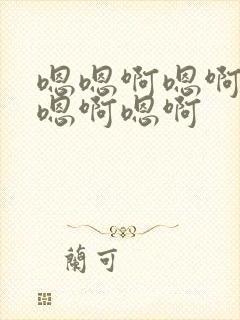 嗯嗯啊嗯啊
嗯啊嗯啊
蘭可